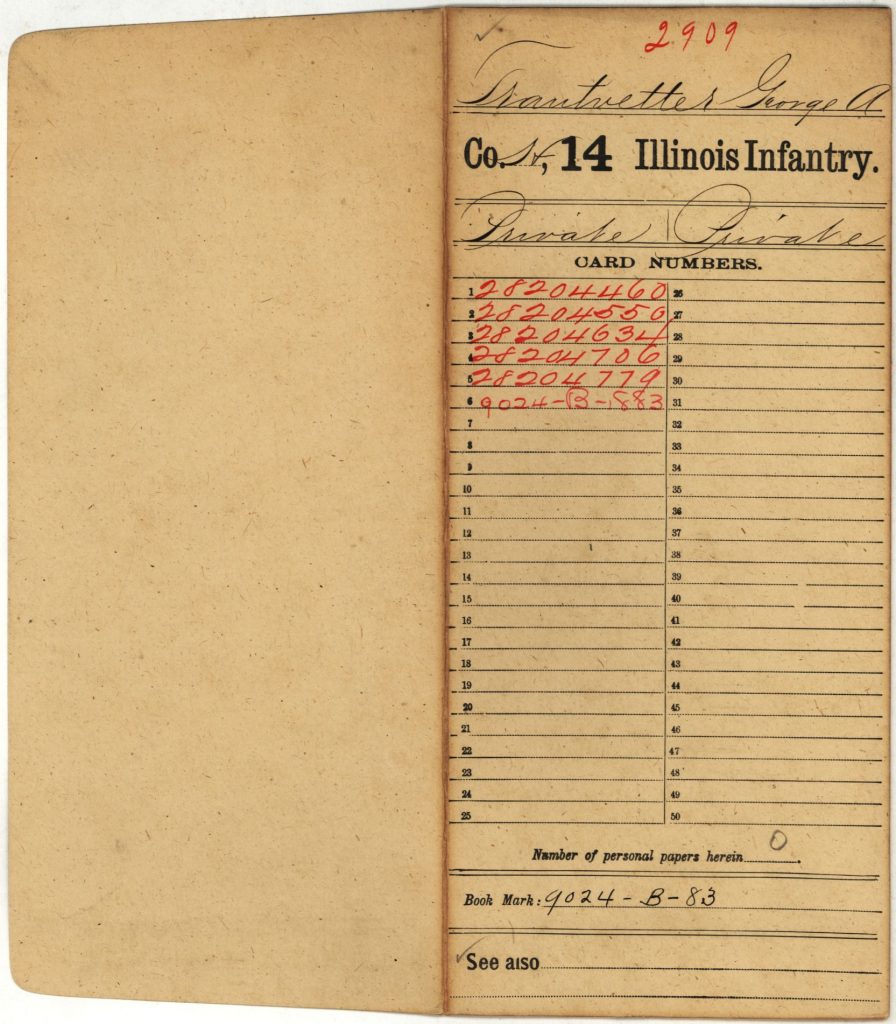 2909
Trautvetter George A
Co. H, 14 Illinois Infantry.
Private | Private
CARD NUMBERS.
1 28204460 26
2 28204550 27
3 28204634 28
4 28204706 29
5 28204779 30
6 9024-B-883 31
7 32
8 33
9 34
10 35
11 36
12 37
13 38
14 39
15 40
16 41
17 42
18 43
19 44
20 45
21 46
22 47
23 48
24 49
25 50
Number of personal papers herein 0.
Book Mark: 9024-B-83
See also